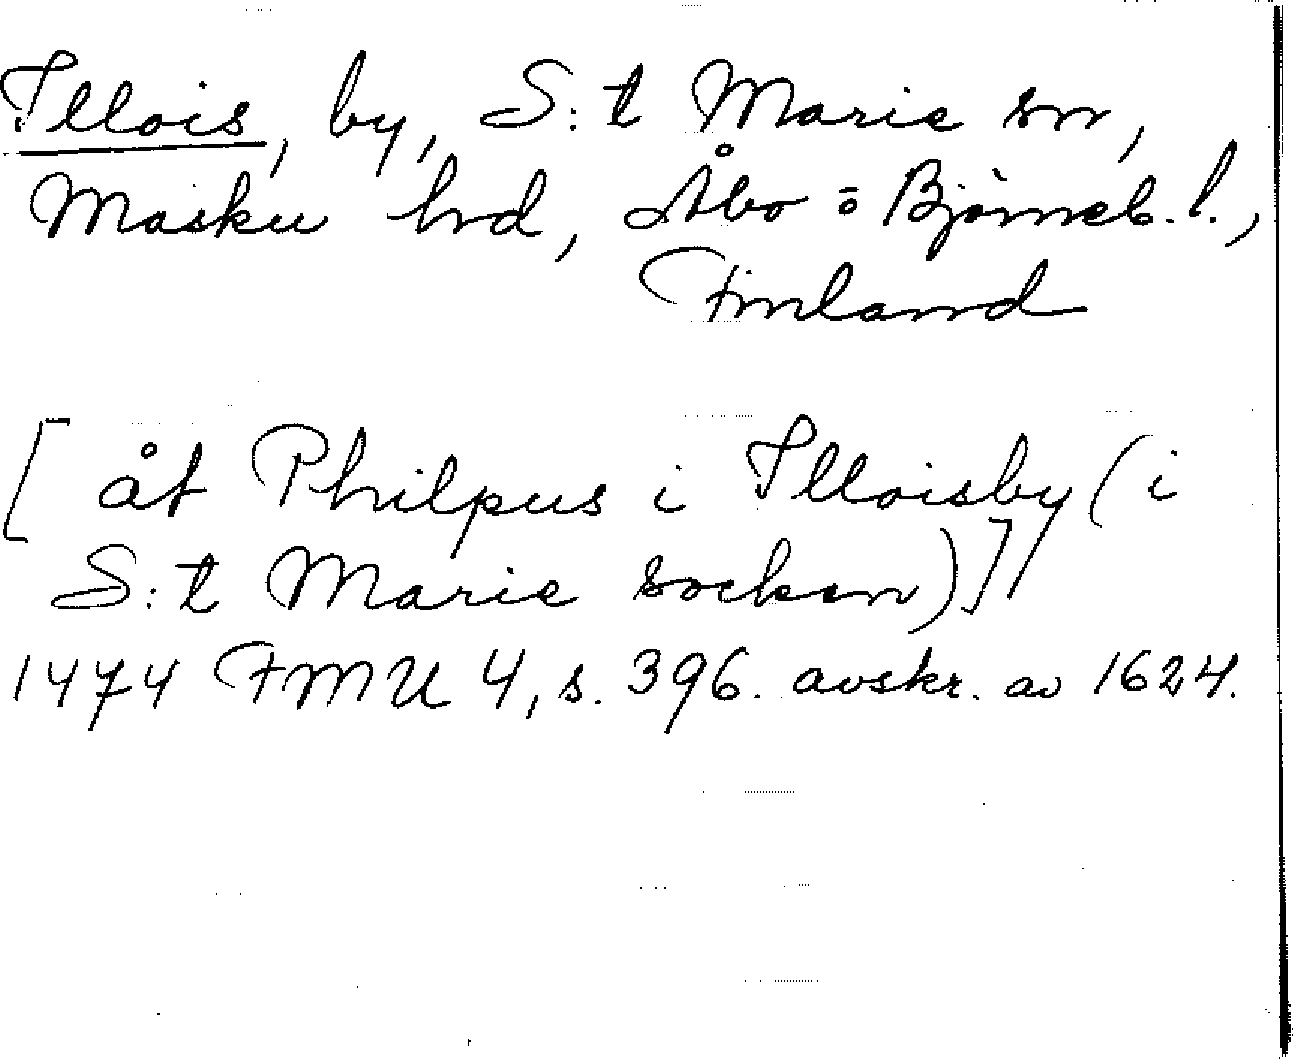 Illois, by, S:t Marie sn,
Masku hrd, Åbo = Björneb. l.,
Finland
[ åt Philpus i Illoisby (i
S:t Marie socken)]
1474 FMU 4, s. 396. avskr. av 1624.